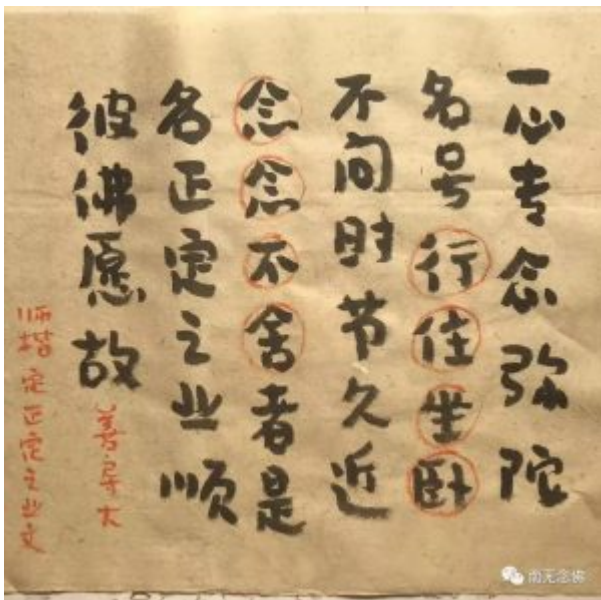 一心专念弥陀
名号行住坐卧
不问时节久近
念念不舍者是
名正定之业顺
彼佛愿故
善导大
师楷定正定之业文
南无念佛